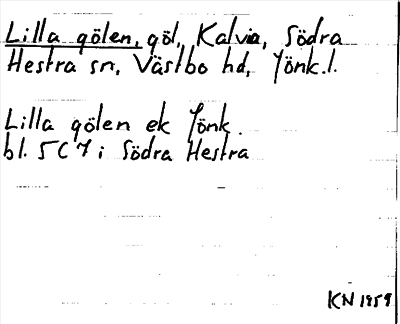 Lilla gölen, göl, Kalvia, Södra
Hestra sn, Västbo hd, Jönk.l.
Lilla gölen ek Jönk.
bl. 5C7 i Södra Hestra
KN 1959